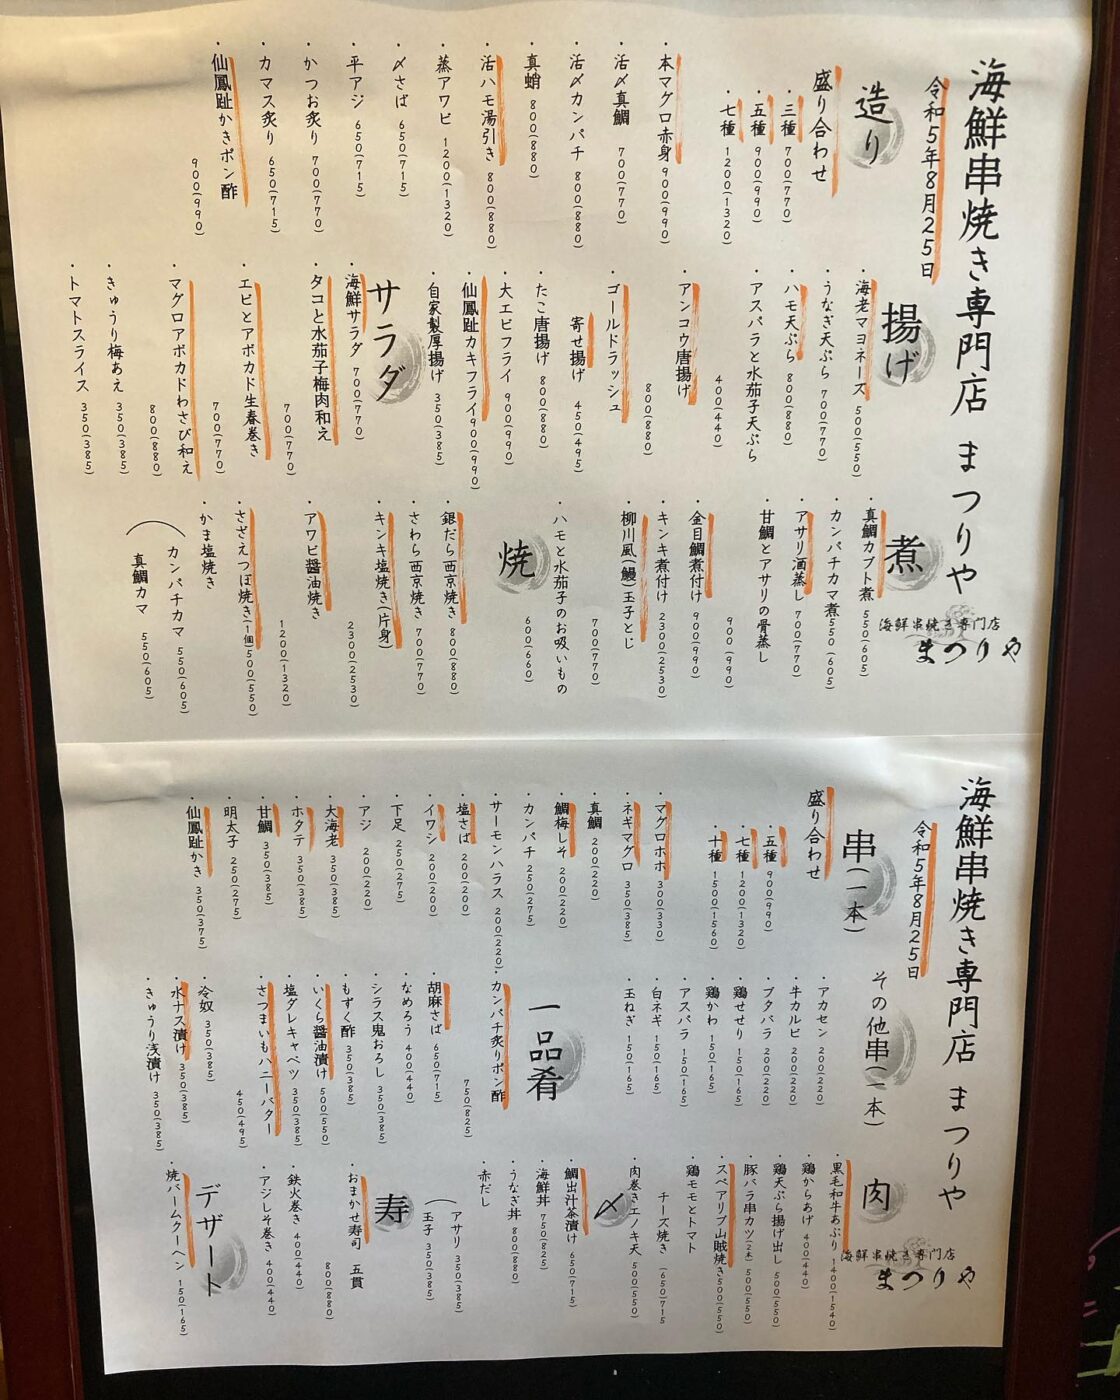 海鮮串焼き専門店 まつりや
令和5年8月25日
造り
盛り合わせ
・三種 700(770)
・五種 900(990)
・七種 1200(1320)
・本マグロ赤身 900(990)
・活〆真鯛 700(770)
・活〆カンパチ 800(880)
・真蛸 800(880)
・活ハモ湯引き 800(880)
・蒸アワビ 1200(1320)
・〆さば 650(715)
・平アジ 650(715)
・かつお炙り 700(770)
・カマス炙り 650(715)
・仙鳳趾かきポン酢
900(990)
揚げ
・海老マヨネーズ 500(550)
・うなぎ天ぷら 700(770)
・ハモ天ぷら 800(880)
・アスパラと水茄子天ぷら
400(440)
・アンコウ唐揚げ
800(880)
・ゴールドラッシュ
寄せ揚げ 450(495)
・たこ唐揚げ 800(880)
・大エビフライ 900(990)
・仙鳳趾カキフライ900(990)
・自家製厚揚げ 350(385)
サラダ
・海鮮サラダ 700(770)
・タコと水茄子梅肉和え
700(770)
・エビとアボカド生春巻き
700(770)
・マグロアボカドわさび和え
800(880)
・きゅうり梅あえ 350(385)
・トマトスライス 350(385)
煮
・真鯛カブト煮 550(605)
・カンパチカマ煮550(605)
・アサリ酒蒸し 700(770)
・甘鯛とアサリの骨蒸し
900(990)
・金目鯛煮付け 900(990)
・キンキ煮付け 2300(2530)
・柳川風(鰻)玉子とじ
700(770)
・ハモと水茄子のお吸いもの
600(660)
焼
・銀だら西京焼き 800(880)
・さわら西京焼き 700(770)
・キンキ塩焼き(片身)
2300(2530)
・アワビ醤油焼き
1200(1320)
・さざえつぼ焼き(1個)500(550)
・かま塩焼き
カンパチカマ 550(605)
真鯛カマ 550(605)
海鮮串焼き専門店
まつりや
海鮮串焼き専門店 まつりや
令和5年8月25日
串(一本)
盛り合わせ
・五種 900(990)
・七種 1200(1320)
・十種 1500(1560)
・マグロホホ 300(330)
・ネギマグロ 350(385)
・真鯛 200(220)
・鯛梅しそ 200(220)
・カンパチ 250(275)
・サーモンハラス 200(220)
・塩さば 200(200)
・イワシ 200(200)
・下足 250(275)
・アジ 200(220)
・大海老 350(385)
・ホタテ 350(385)
・甘鯛 350(385)
・明太子 250(275)
・仙鳳趾かき 350(375)
その他串(一本)
・アカセン 200(220)
・牛カルビ 200(220)
・ブタバラ 200(220)
・鶏せせり 150(165)
・鶏かわ 150(165)
・アスパラ 150(165)
・白ネギ 150(165)
・玉ねぎ 150(165)
一品肴
・カンパチ炙りポン酢
750(825)
・胡麻さば 650(715)
・なめろう 400(440)
・シラス鬼おろし 350(385)
・もずく酢 350(385)
・いくら醤油漬け 500(550)
・塩ダレキャベツ 350(385)
・さつまいもハニーバター
450(495)
・冷奴 350(385)
・水ナス漬け 350(385)
・きゅうり浅漬け 350(385)
肉
・黒毛和牛あぶり 1400(1540)
・鶏からあげ 400(440)
・鶏天ぷら揚げ出し 500(550)
・豚バラ串カツ(2本) 500(550)
・スペアリブ山賊焼き500(550)
・鶏モモとトマト
チーズ焼き (650)715
・肉巻きエノキ天 500(550)
〆
・鯛出汁茶漬け 650(715)
・海鮮丼 750(825)
・うなぎ丼 800(880)
・赤だし
アサリ 350(385)
玉子 350(385)
寿
・おまかせ寿司 五貫
800(880)
・鉄火巻き 400(440)
・アジしそ巻き 400(440)
デザート
・焼バームクーヘン 150(165)
海鮮串焼き専門店
まつりや